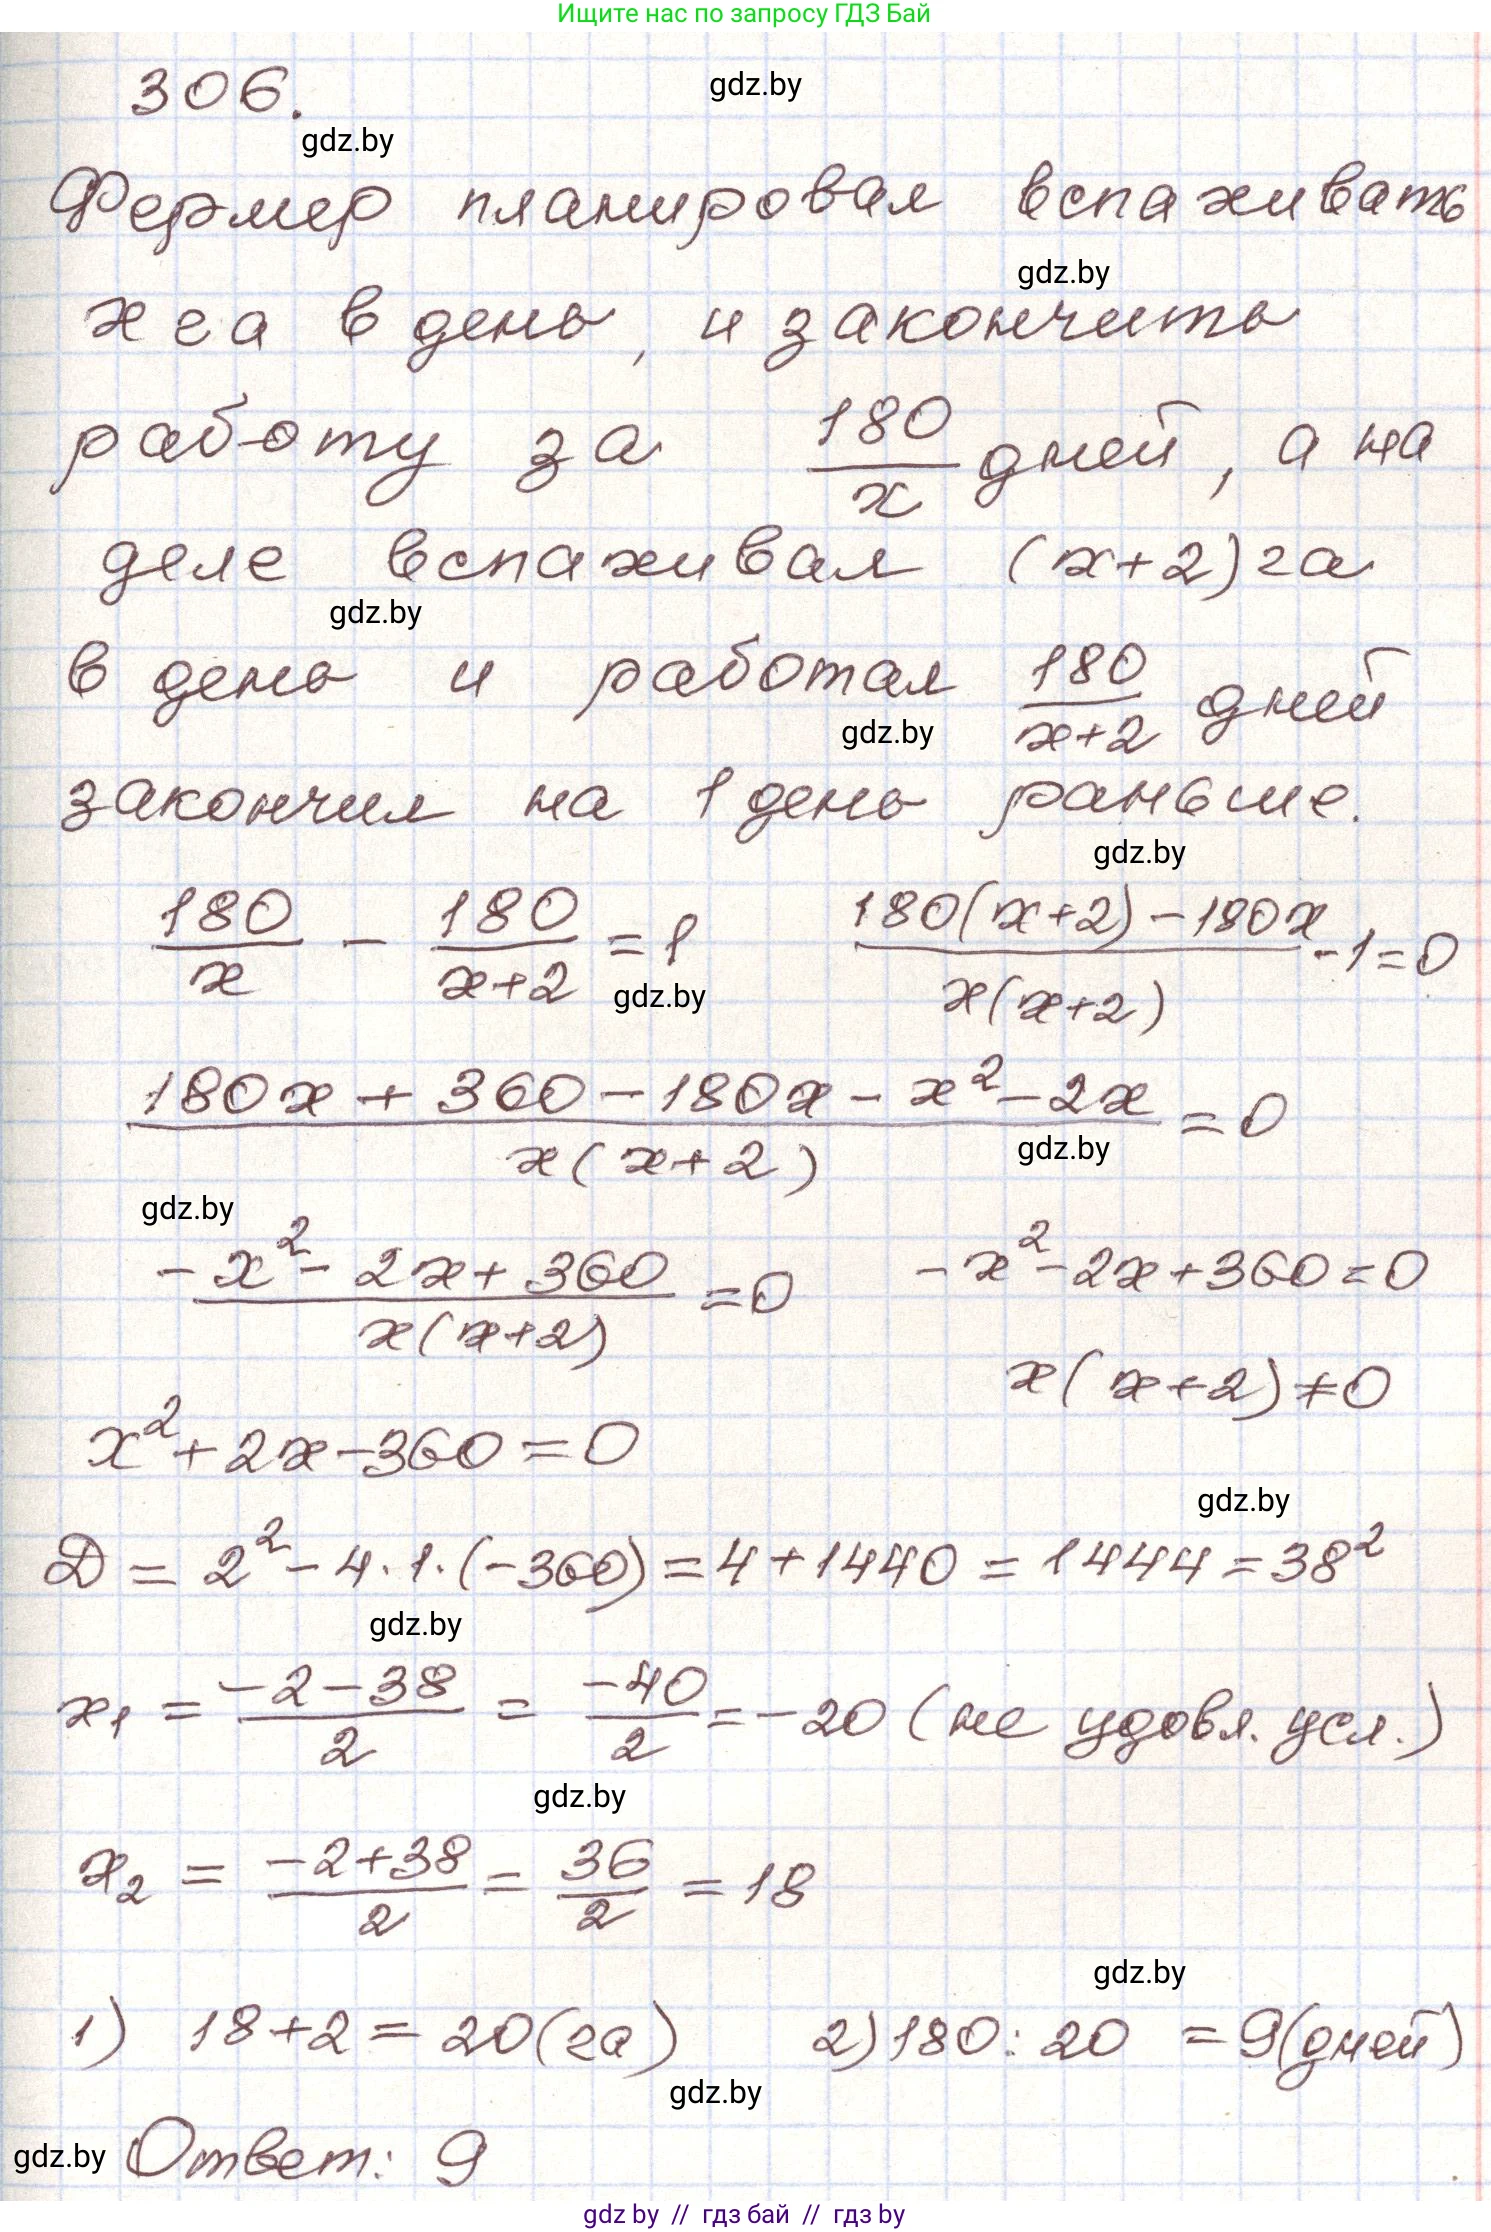 Ищите нас по запросу ГДЗ Бай
306.
gdz.by
gdz.by
Фермер планировал вспахивать
gdz.by
х га в день, и закончить
работу за 180/x дней, а на
деле вспахивал (x+2) га
gdz.by
в день и работал 180/(x+2) дней
gdz.by
закончил на 1 день раньше.
gdz.by
180/x - 180/(x+2) = 1    (180(x+2) - 180x)/(x(x+2)) - 1 = 0
gdz.by
(180x + 360 - 180x - x² - 2x)/(x(x+2)) = 0
gdz.by
gdz.by
(-x² - 2x + 360)/(x(x+2)) = 0    -x² - 2x + 360 = 0
x(x+2) ≠ 0
x² + 2x - 360 = 0
gdz.by
Д = 2² - 4·1·(-360) = 4 + 1440 = 1444 = 38²
gdz.by
x₁ = (-2-38)/2 = -40/2 = -20 (не удовл. усл.)
gdz.by
x₂ = (-2+38)/2 = 36/2 = 18
gdz.by
1) 18+2 = 20 (га)    2) 180 : 20 = 9 (дней)
gdz.by
gdz.by
Ответ: 9
gdz.by // гдз бай // гдз by